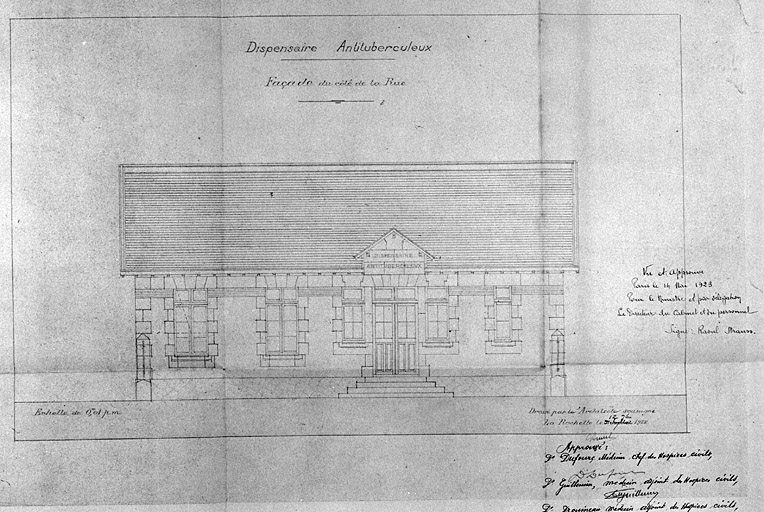 Dispensaire Antituberculeux
Façade du côté de la Rue
DISPENSAIRE
ANTITUBERCULEUX
Vu et approuvé
Paris le 14 Mai 1923
Pour le Ministre et par délégation
Le Directeur du Cabinet et du personnel
Signé: Raoul Strauss.
Echelle de 0.01 p.m.
Dressé par l'Architecte soussigné
La Rochelle le 1922
Approuvé:
Dr Dufour, Médecin chef des Hospices civils,
Dr Guillemin, médecin adjoint des Hospices civils,
Dr Drouineau médecin adjoint des Hospices civils,